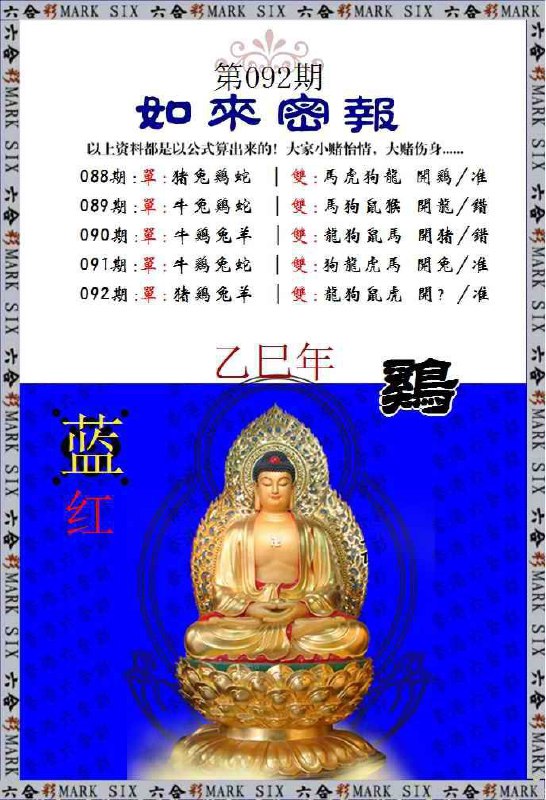 六合彩MARK SIX 六合彩MARK SIX 六合彩MARK SIX 六合彩MARK SIX
第092期
如來密報
以上资料都是以公式算出来的！大家小赌怡情，大赌伤身......
088期:單:猪兔鷄蛇 | 雙:馬虎狗龍 開鷄/准
089期:單:牛兔鷄蛇 | 雙:馬狗鼠猴 開龍/錯
090期:單:牛鷄兔羊 | 雙:龍狗鼠馬 開猪/錯
091期:單:牛鷄兔蛇 | 雙:狗龍虎馬 開兔/准
092期:單:猪鷄兔羊 | 雙:龍狗鼠虎 開?/准
乙巳年
鷄
蓝
红
卍
六合彩MARK SIX 六合彩MARK SIX 六合彩MARK SIX 六合彩MARK SIX